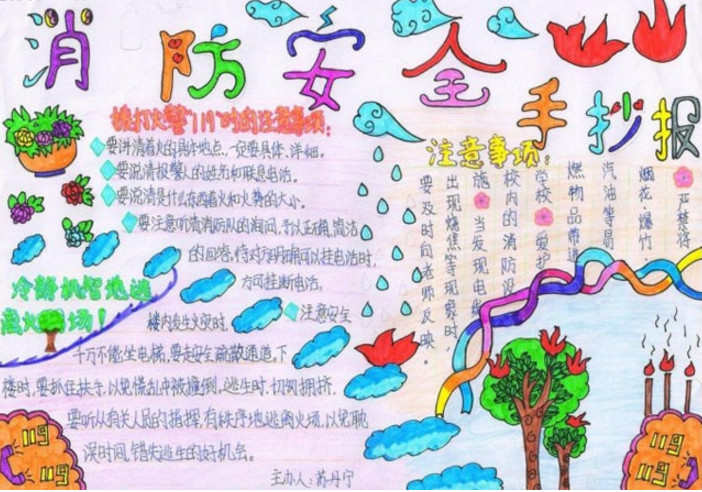 消防安全手抄报
拨打火警"119"时的注意事项:
要讲清着火的具体地点,一定要具体、详细。
要说清报警人的姓名和联系电话。
要说清是什么东西着火和火势的大小。
要注意听清消防队的询问,予以正确,简洁
的回答,待对方明确可以挂电话时,
方可挂断电话。
冷静机智地逃
离火场!
注意安全
楼内发生火灾时,
千万不能坐电梯,要走安全疏散通道。下
楼时,要抓住扶手,以免慌乱中被撞倒。逃生时,切勿拥挤,
要听从有关人员的指挥,有秩序地逃离火场,以免耽
误时间,错失逃生的好机会。
主办人:苏丹宁
注意事项:
严禁将
烟花爆竹
汽油等易
燃物品带进
学校 爱护
校内的消防设
施 当发现电线
出现烧焦等现象时,
要及时向老师反映。
119
119
119
119